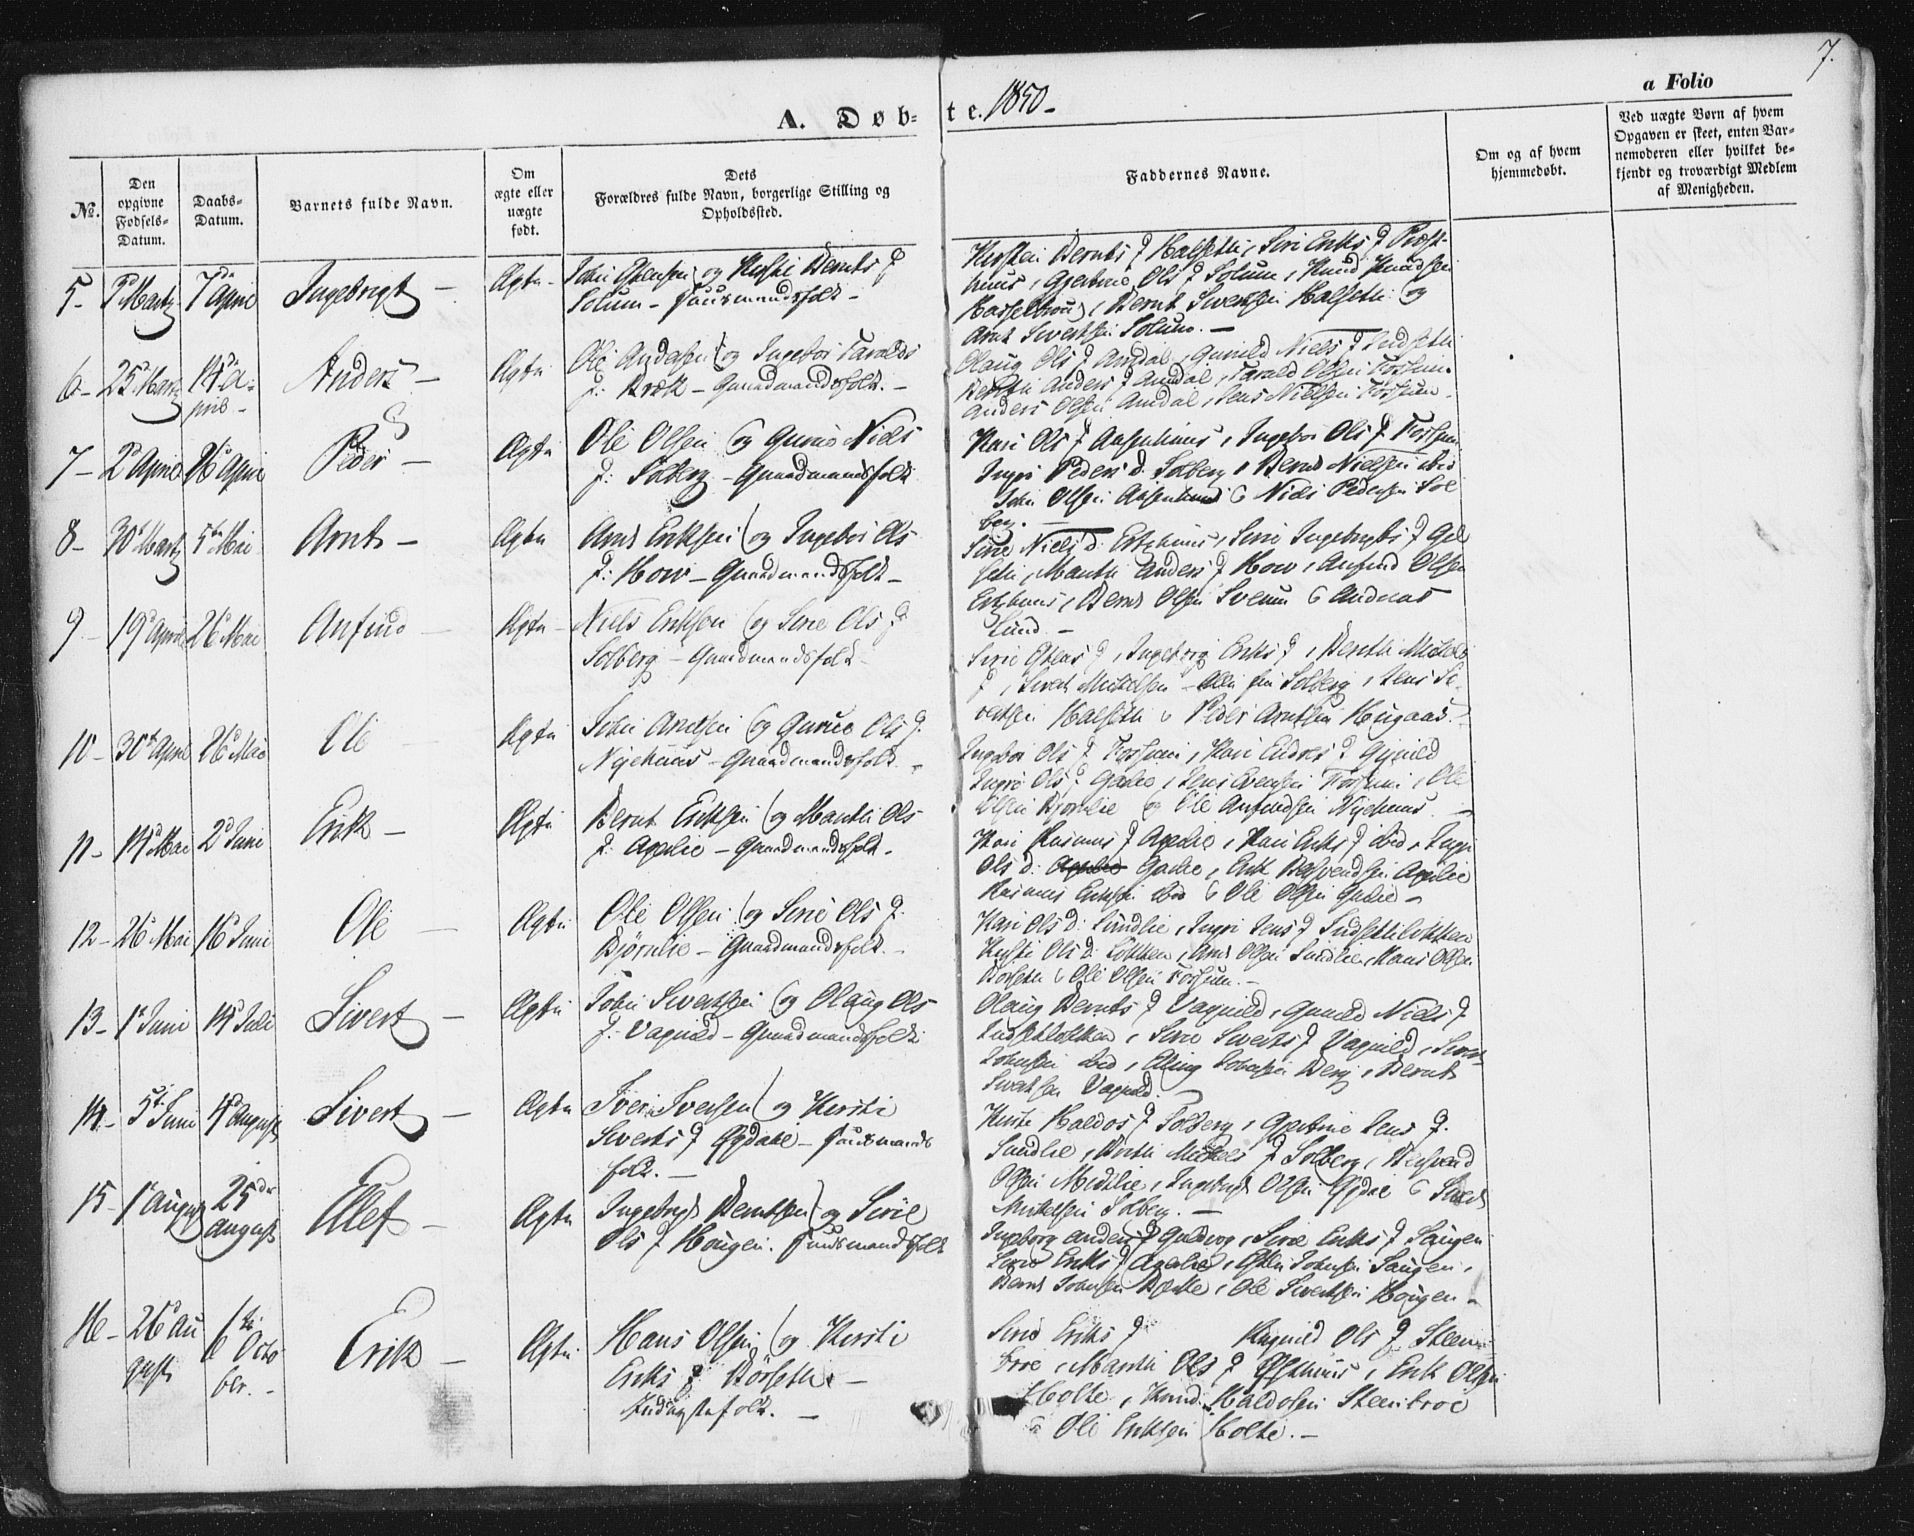 7.
A. Døb-te. 1850 -
a Folio
No.
Den opgivne Fødsels-Datum.
Daabs-Datum.
Barnets fulde Navn.
Om ægte eller uægte født.
Dets Forældres fulde Navn, borgerlige Stilling og Opholdssted.
Faddernes Navne.
Om og af hvem hjemmedøbt.
Ved uægte Børn af hvem Opgaven er skeet, enten Barnemoderen eller hvilket bekjendt og troværdigt Medlem af Menigheden.
5 - Martz 7de April Ingebrigt - Ægte - og Kirsti Bernts
Solum - Huusmandsfolk -
Kirsten Bernts Halseth, Siri Eriks Præst-
huus, Gjertrue Ols Solum, Knud Knudsen
Hasselbrou, Bernt Sivertsen Halseth og
Arnt Sivertsen Solum. -
6 - 25 Martz 14de A-pril - Anders - Ægte Ole Andersen og Ingebor Taralds
Bræk - Gaardmandsfolk -
Olaug Ols Amdal, Gunild Niels Indseth
Berith Anders Amdal, Tarald Olsen Forsem
Anders Olsen Amdal, Jens Nielsen Forsem.
7 - 2 April 26 April Peder - Ægte Ole Olsen og Guruo Niels
Solberg - Gaardmandsfolk
Kari Ols Aasenhuus, Ingebor Ols Forsem
Ingri Peders d. Solberg, Bernt Nielsen ibid
John Olsen Aasenhuus & Niels Pedersen Sol
berg. -
8 - 30 Martz 5te Mai Arnt - Ægte Arnt Eriksen og Ingebor Ols
How - Gaardmandsfolk -
Sirie Niels d. Estehuus, Sirie Ingebrigts
Marith Anders How, Anfind Olsen
Estehuus, Bernt Olsen Svenn & Andreas
Lund -
9 - 19 April 26 Mai Anfind - Ægte - Niels Eriksen og Sirie Ols
Solberg - Gaardmandsfolk -
Sirie Estens, Ingebrig Eriks, Berith Mikkels
, Sivert Mikkelsen - Alle fra Solberg, Jens Si-
vertsen Halseth & Peder Arntsen Haugaas.
10 - 30 April 26 Mai Ole - Ægte John Arntsen og Guruo Ols
Nyehuus - Gaardmandsfolk -
Ingebor Ols Forsem, Kari Endres Gynild
Ingri Ols Gaalie, Jens Evensen Forsem, Ole
Olsen Bjørnlie og Ole Anfindsen Nyehuus. -
11 - 14 Mai 2 Juni Erik - Ægte Bernt Eriksen og Marith Ols
Agelie - Gaardmandsfolk -
Kari Rasmus Agelie, Kari Eriks ibid, Ingri
Ols d. Agelie Gaalie, Erik Agelie
Rasmus Eriksen ibid & Ole Olsen Gaalie -
12 - 26 Mai 16 Juni Ole - Ægte Ole Olsen og Sirie Ols
Bjørnlie - Gaardmandsfolk -
Kari Ols d. Sundlie, Ingri Jens Indsetløkken
Kirsti Ols d. Løkken, Arnt Olsen Sundlie, Hans Olsen
Børseth & Ole Olsen Forsem. -
13 - 1 Juni 14 Juli Sivert - Ægte John Sivertsen og Olaug Ols
Vagnild - Gaardmandsfolk
Olaug Bernts Vagnild, Gunild Niels
Indsetløkken, Sirie Siverts Vagnild, Sivert
Johnsen ibid, Elling Johnsen Berg, Bernt
Sivertsen Vagnild. -
14 - 5te Juni 4 August Sivert - Ægte Iver Iversen og Kirsti
Siverts Ogdal - Huusmands
folk. -
Kirsti Haldos Solberg, Gjertrue Jens
Sundlie, Berith Mikkels Solberg,
Olsen Midtlie, Ingebrigt Olsen Ogdal & Sivert
Mikkelsen Solberg. -
15 - 1 August 25de August Ellef - Ægte Ingebrigt Berntsen og Sirie
Ols Hougen. Huusmandsfolk
Ingeborg Anders Guldvog, Sirie Eriks Hougen
Sirie Eriks Agelie, Esten Johnsen Hougen,
Bernt Johnsen Bjerke, Ole Sivertsen Hougen -
16 - 26 Au gust 6te Octo ber. - Erik - Ægte Hans Olsen og Kirsti
Eriks Børseth -
Inderstfolk. -
Sirie Eriks Ragnild Ols Steen
broe, Marith Ols, Erik Olsen
Holte, Knud Haldosen Steenbroe
& Ole Eriksen Holte. -